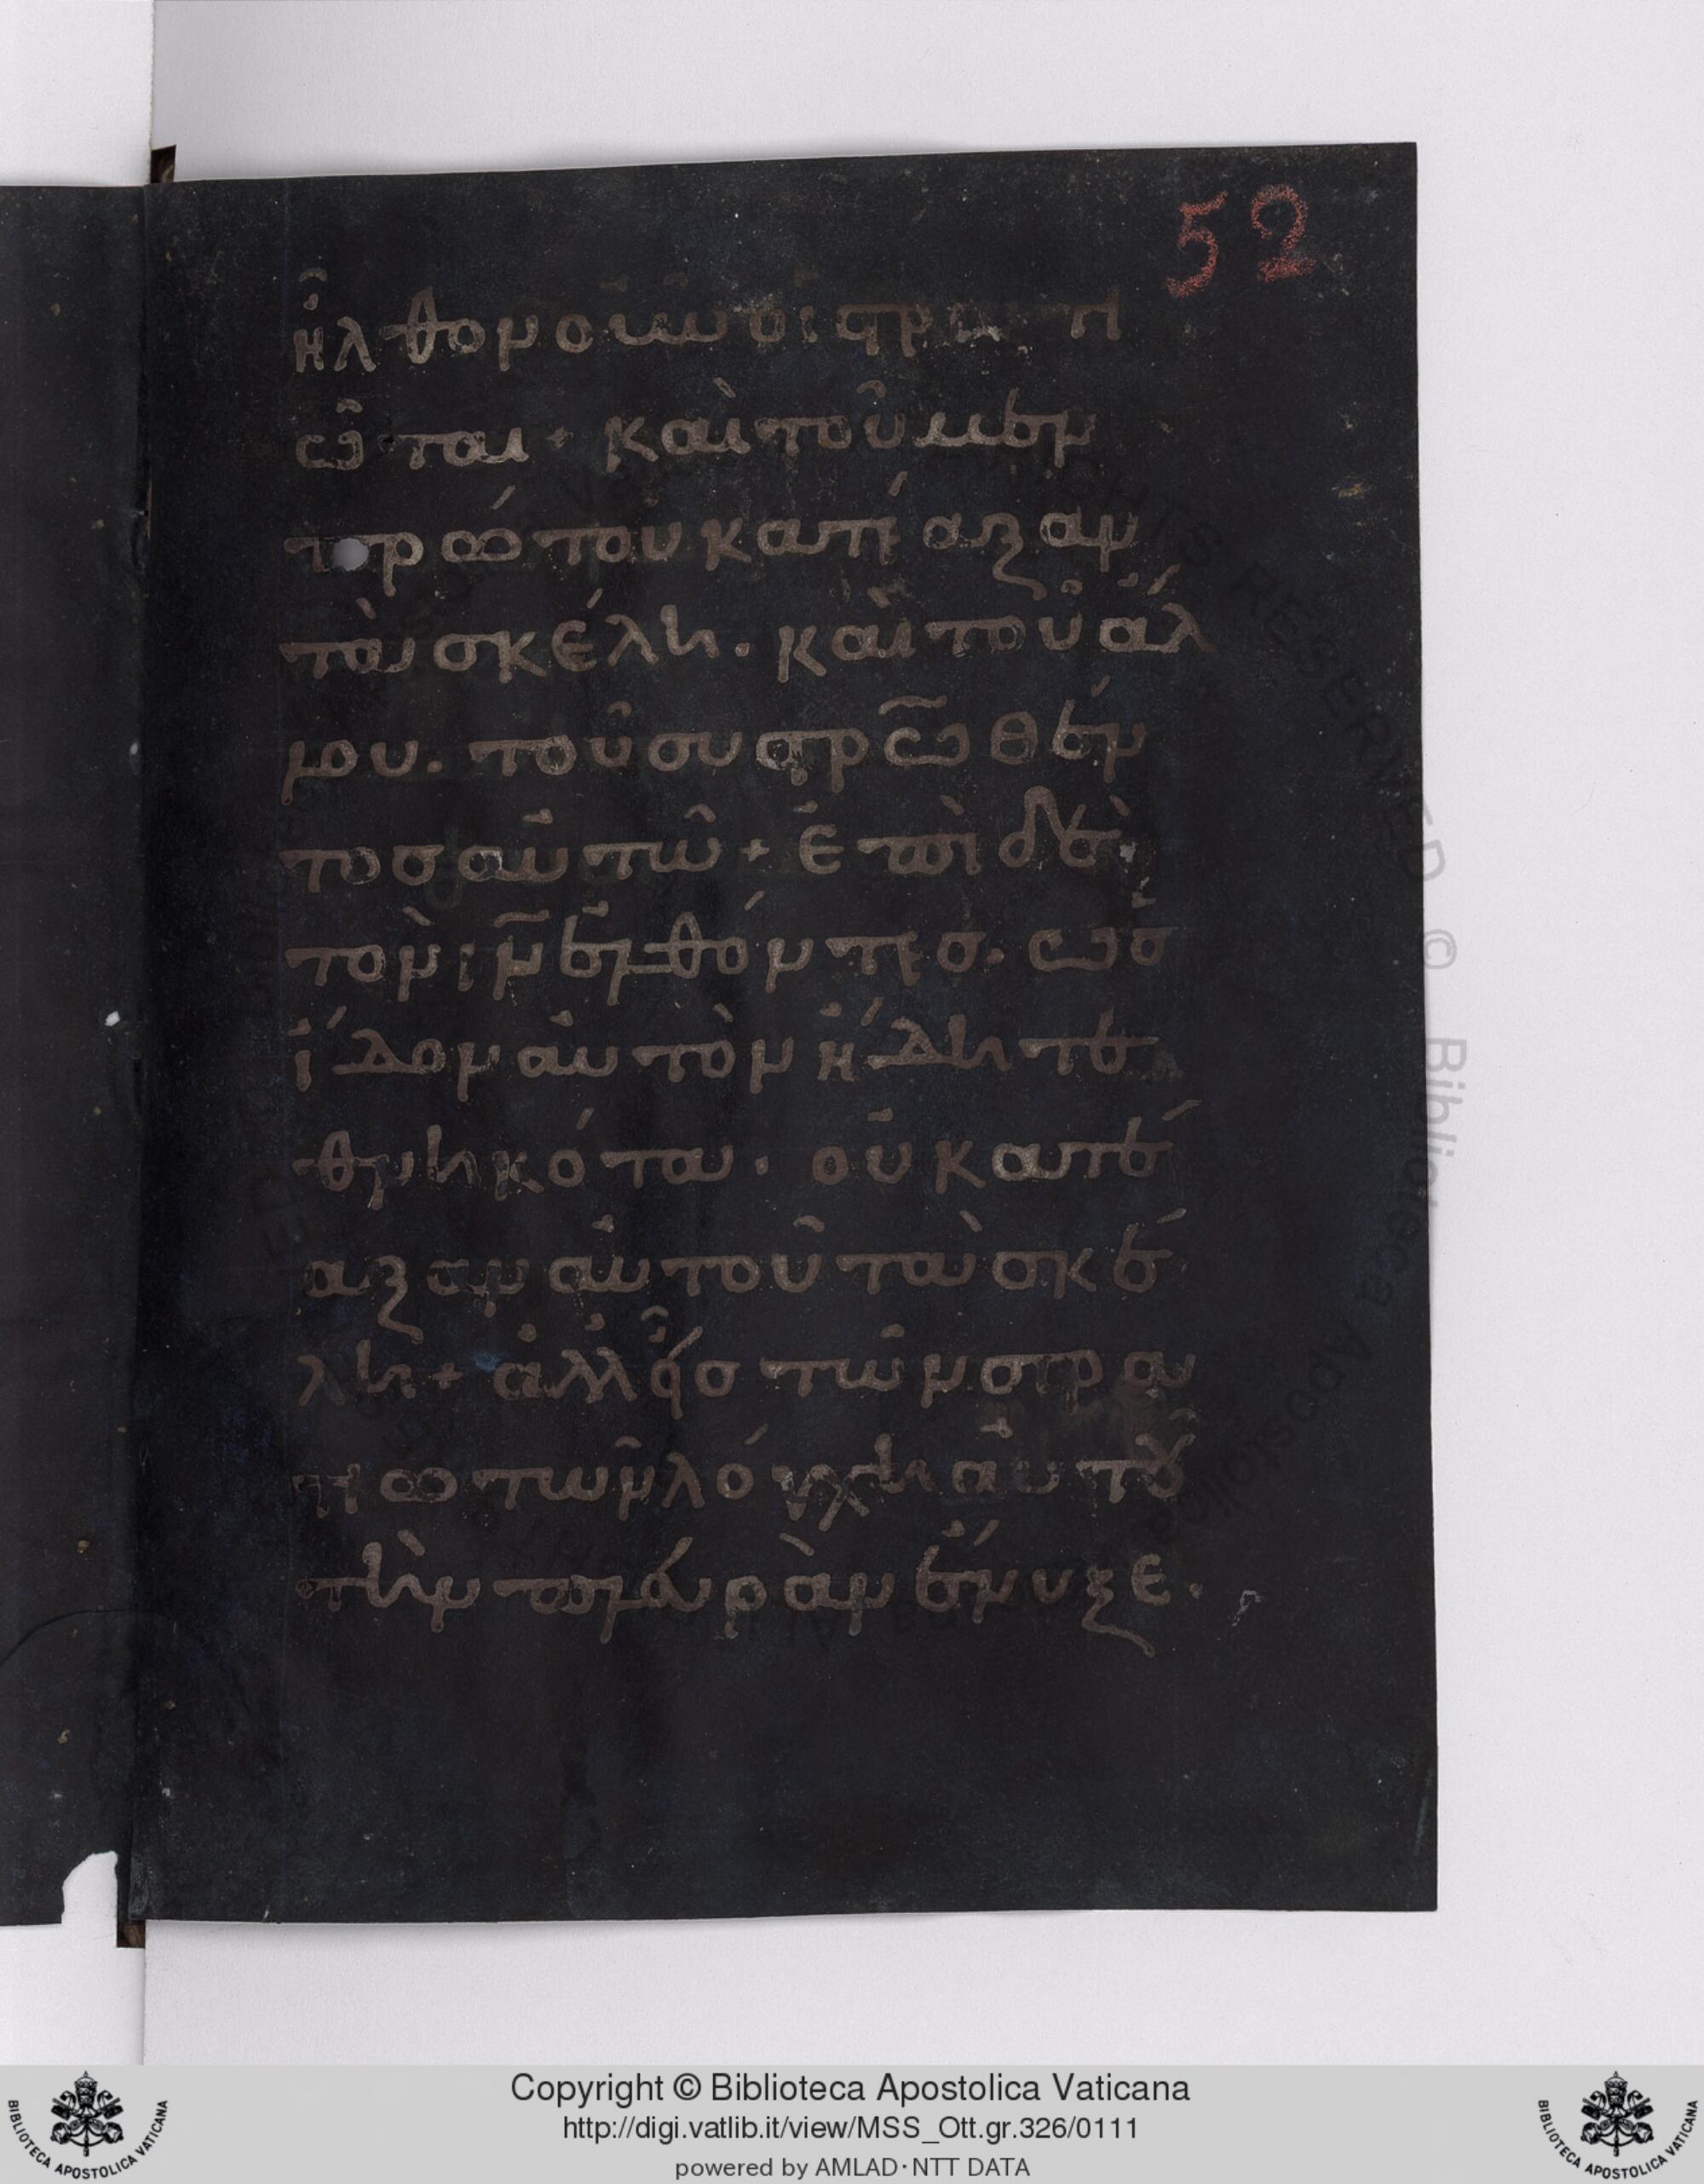 52
ἦλθον οὖν οἱ στρατι
ῶται + καὶ τοῦ μὲν
πρώτου κατέαξαν
τὰ σκέλη. καὶ τοῦ ἄλ
λου. τοῦ συστρωθέν
τος αὐτῶ + ἐπὶ δὲ
τὸν ιν ἐλθόντες. ὡσ
ἴδον αὐτὸν ἤδη τε
θνηκότα. οὐ κατέ
αξαν αὐτοῦ τὰ σκέ
λη + ἀλλ' εἷσ τῶν στρα
τιωτῶν λόγχη αὐτοῦ
τὴν πλευρὰν ἔνυξε.
Copyright © Biblioteca Apostolica Vaticana
http://digi.vatlib.it/view/MSS_Ott.gr.326/0111
powered by AMLAD·NTT DATA
BIBLIOTECA APOSTOLICA VATICANA
BIBLIOTECA APOSTOLICA VATICANA